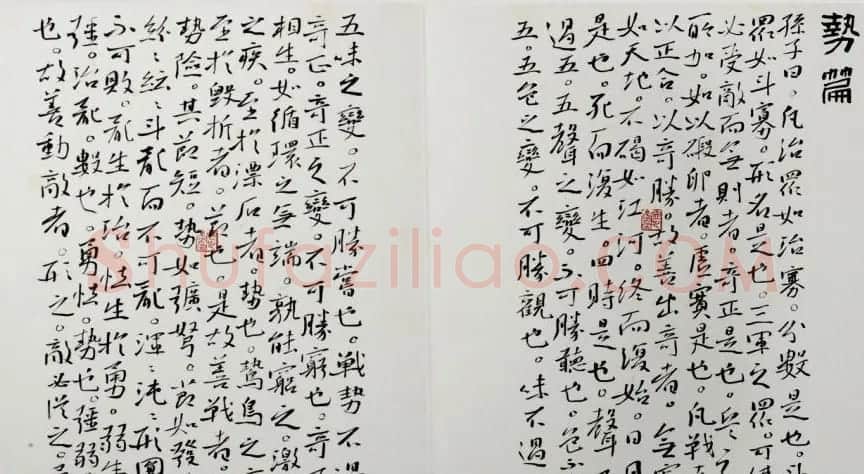 勢篇
孫子曰。凡治眾如治寡。分數是也。
眾如斗寡。形名是也。三軍之眾。可
必受敵而無則者。奇正是也。兵之
所加。如以碫卵者。虛實是也。凡戰
以正合。以奇勝。故善出奇者。無
如天地。不竭如江河。終而復始。日月
是也。死而復生。四時是也。聲
過五。五聲之變。不可勝聽也。色不
五。五色之變。不可勝觀也。味不過
五味之變。不可勝嘗也。戰勢不過
奇正。奇正之變。不可勝窮也。奇正
相生。如循環之無端。孰能窮之。激
之疾。至於漂石者。勢也。鷙鳥之
至於毀折者。節也。是故善戰者。
勢險。其節短。勢如彍弩。節如發
紛〻紜〻。斗亂而不可亂。渾〻沌〻。形圓
不可敗。亂生於治。怯生於勇。弱生
彊。治亂。數也。勇怯。勢也。彊弱
也。故善動敵者。形之。敵必從之。
Shufaziliao.COM